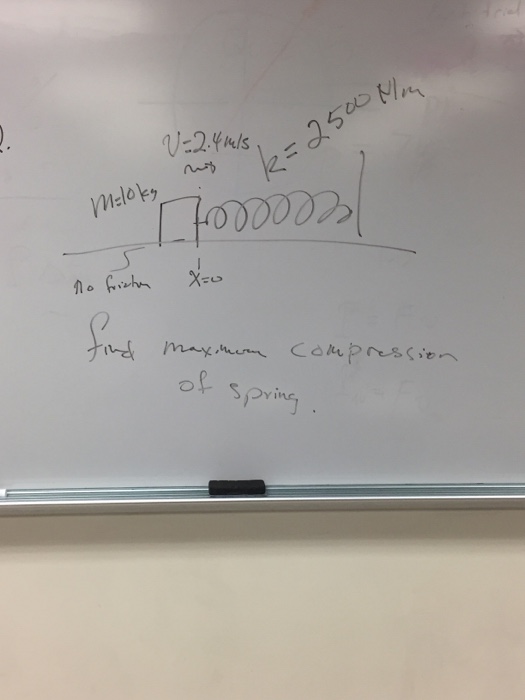 2.
V=2.4m/s
k=2500 N/m
M=10kg
no friction
X=0
find maximum compression
of spring.